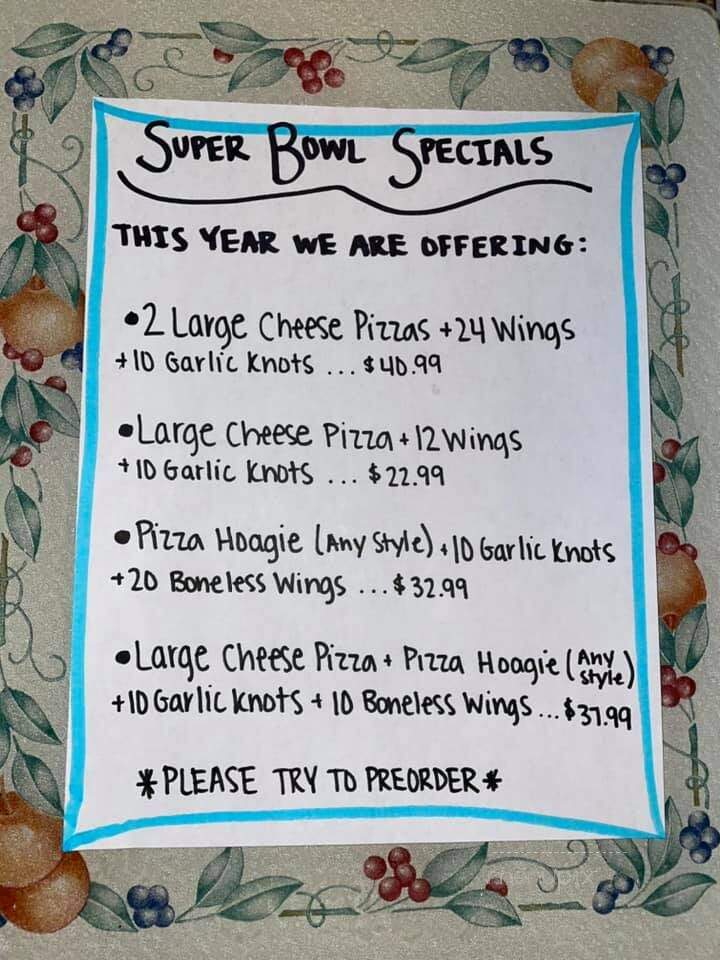 SUPER BOWL SPECIALS
THIS YEAR WE ARE OFFERING:
•2 Large Cheese Pizzas +24 Wings
+10 Garlic Knots ... $40.99
•Large Cheese Pizza + 12 Wings
+10 Garlic Knots ... $22.99
•Pizza Hoagie (Any Style) + 10 Garlic Knots
+20 Boneless Wings ... $32.99
•Large Cheese Pizza + Pizza Hoagie (Any Style)
+10 Garlic Knots + 10 Boneless Wings ... $37.99
*PLEASE TRY TO PREORDER*